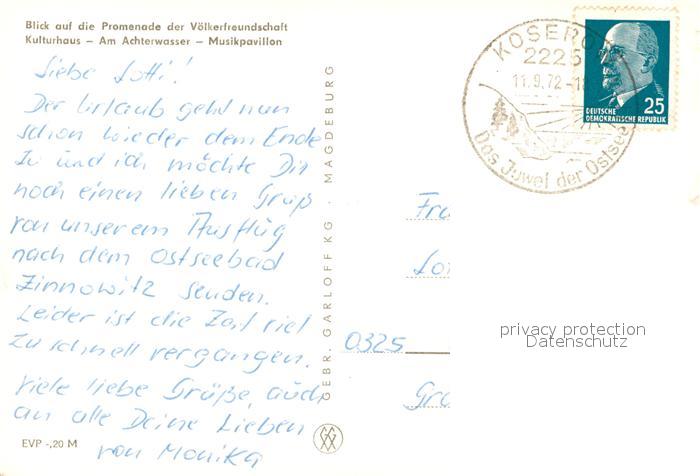 Blick auf die Promenade der Völkerfreundschaft
Kulturhaus – Am Achterwasser – Musikpavillon
Liebe Lotti!
Der Urlaub geht nun
schon wieder dem Ende
zu und ich möchte Dir
noch einen lieben Gruß
von unserem Ausflug
nach dem Ostseebad
Zinnowitz senden.
Leider ist die Zeit viel
zu schnell vergangen.
Viele liebe Grüße, auch
an alle Deine Lieben
von Monika
EVP -,20 M
GEBR. GARLOFF KG · MAGDEBURG
KOSEROW
2225
11.9.72-1
Das Juwel der Ostsee
25
DEUTSCHE
DEMOKRATISCHE REPUBLIK
Fra
Lo
0325
Gr
privacy protection
Datenschutz